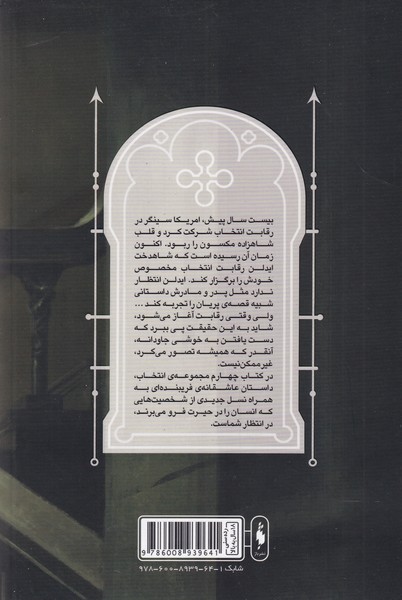 بیست سال پیش، امریکا سینگر در
رقابت انتخاب شرکت کرد و قلب
شاهزاده مکسون را ربود. اکنون
زمان آن رسیده است که شاهدخت
ایدلن رقابت انتخاب مخصوص
خودش را برگزار کند. ایدلن انتظار
ندارد مثل پدر و مادرش داستانی
شبیه قصه‌ی پریان را تجربه کند ...
ولی وقتی رقابت آغاز می‌شود،
شاید به این حقیقت پی ببرد که
دست یافتن به خوشی جاودانه،
آنقدر که همیشه تصور می‌کرد،
غیرممکن نیست.
در کتاب چهارم مجموعه‌ی انتخاب،
داستان عاشقانه‌ی فریبنده‌ای به
همراه نسل جدیدی از شخصیت‌هایی
که انسان را در حیرت فرو می‌برند،
در انتظار شماست.
رده سنی
۱۸ سال به بالا
9 786008 939641
نشر باژ
شابک ۱-۶۴-۸۹۳۹-۶۰۰-۹۷۸